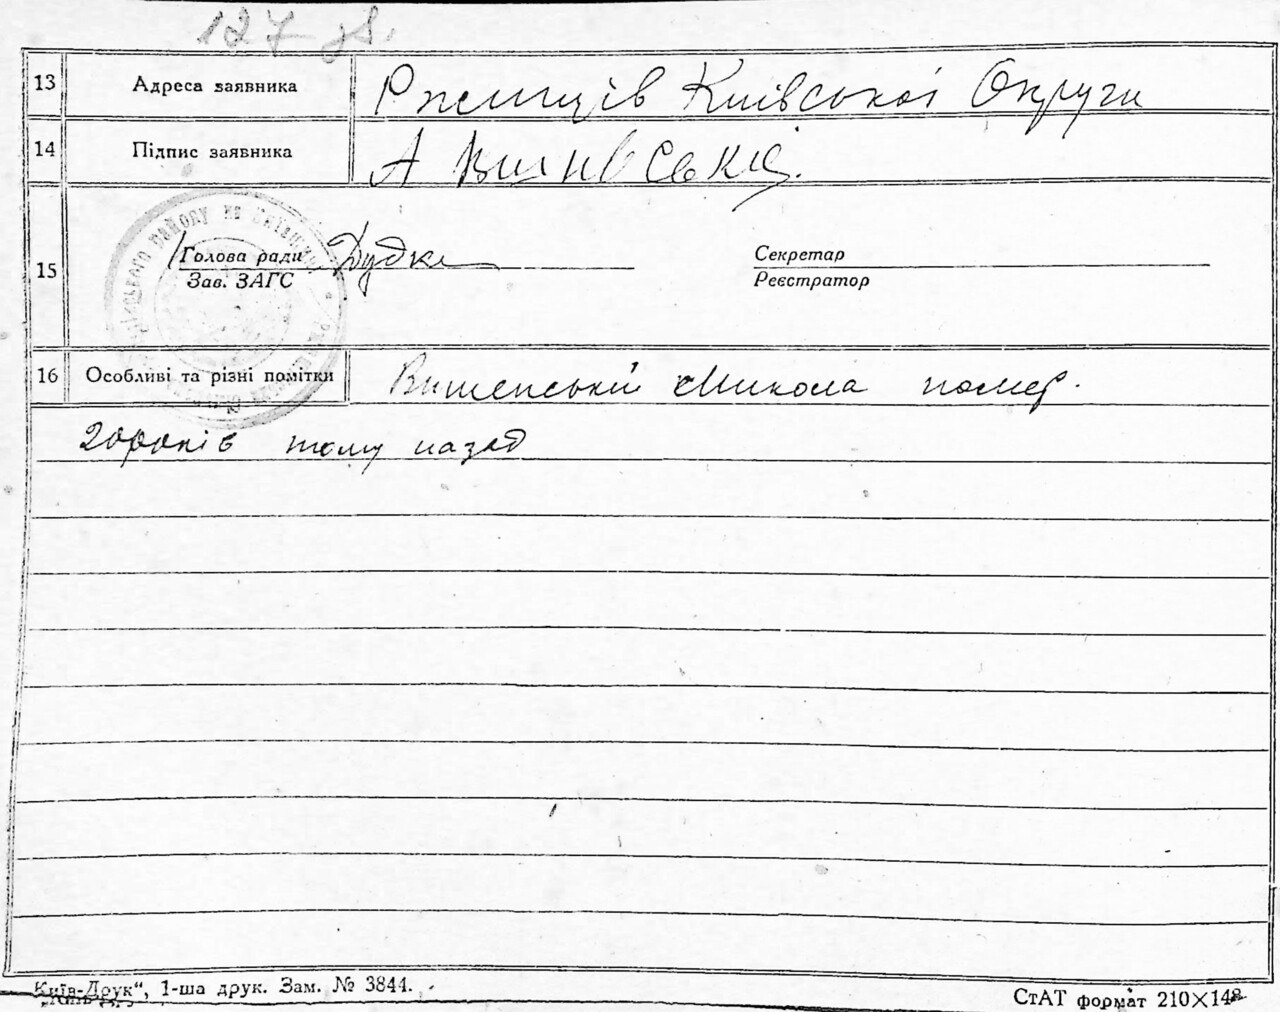 127 зв.
13 Адреса заявника Ржищів Київської Округи
14 Підпис заявника А
15 Голова ради Дудка Секретар
Зав. ЗАГС Реєстратор
16 Особливі та різні помітки Микола помер
20 років тому назад
Київ-Друк“, 1-ша друк. Зам. № 3844.
СтАТ формат 210×148